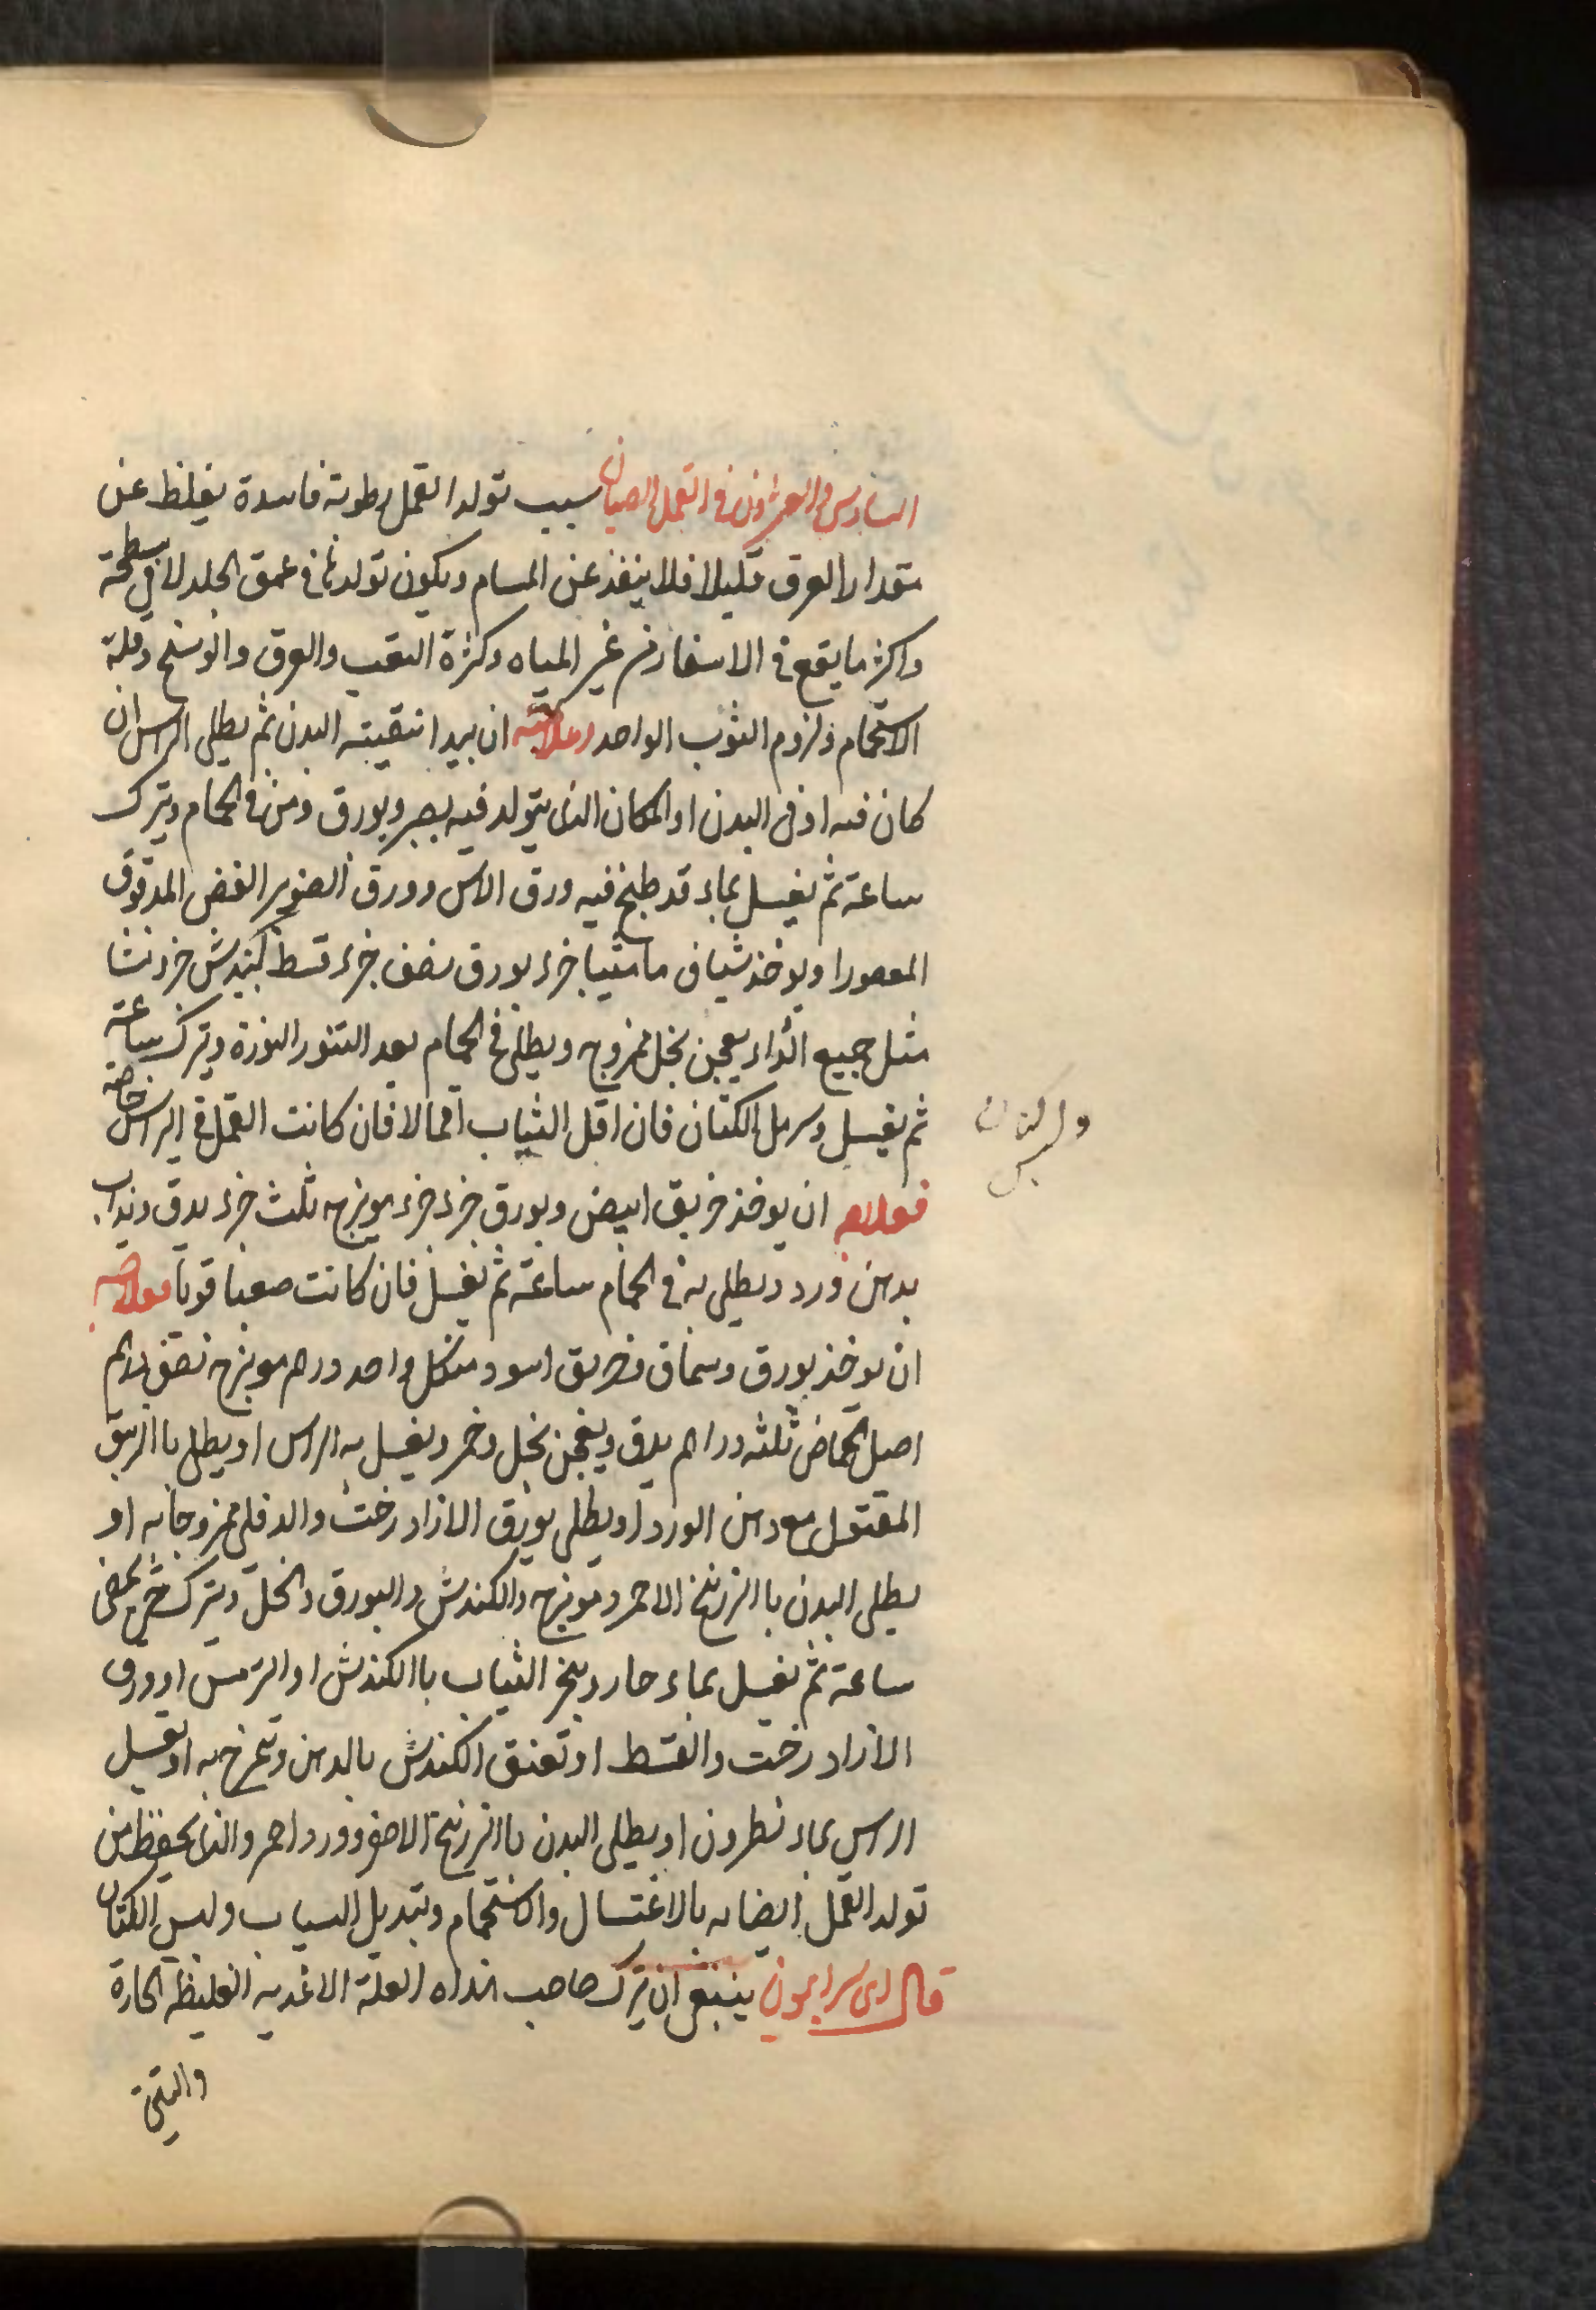 السادس والعشرون في القمل والصيبان سبب تولد القمل رطوبة فاسدة يغلظ عن
مقدار العرق قليلا فلا ينفذ عن المسام ويكون تولدها في عمق الجلد لا في سطحة
واكثر ما يقع في الاسفار من غير المياه وكثرة التعب والعرق والوسخ وقلة
الاستحمام ولزوم الثوب الواحد وعلاجه ان يبدا بتنقيته البدن ثم يطلي الراس ان
كان فيه او في البدن او المكان الذي يتولد فيه بصبر وبورق في الحمام ويترك
ساعة ثم يغسل بماء قد طبخ فيه ورق الاس وورق الصنوبر الغض المدقوق
المعصور او يوخذ شياف ماميثيا جزء بورق نصف جزء قسط كندش جزء نشا
مثل جميع الدواء يعجن بخل ممزوج ويطلى في الحمام بعد التنور النورة ويترك ساعة
ثم يغسل الكتان فان اقل الثياب اقمالا فان كانت القمل في الراس خاصة
فعلاجه ان يوخذ خربق ابيض وبورق جزء جزء مويزج ثلث جزء يدق ويذاب
بدهن ورد ويطلى به في الحمام ساعة ثم يغسل فان كانت صعبا قويا فعلاجه
ان يوخذ بورق وسماق وخربق اسود من كل واحد درهم مويزج نصف درهم
اصل الحماض ثلثه دراهم يدق ويعجن بخل وخمر ويغسل به الراس او يطلى باالزيبق
المقتول مع دهن الورد او يطلى بورق الازاد رخت والدفلى ممزوجا به او
يطلى البدن باالزرنيخ الاحمر ومويزج والكندش والبورق والخل ويترك حتى يمضى
ساعة ثم يغسل بماء حار ويبخر الثياب باالكندش او الترمس او ورق
الازاد رخت والقسط او تعنق الكندش بالدهن وتمرخ به او يغسل
الراس بماء نطرون او يطلى البدن باالزرنيخ الاصفر وورد احمر والذي يحفظ من
تولد القمل ايضا به بالاغتسال والاستحمام وتبديل الثياب ولبس الكتان
قال ابن سرابيون ينبغي ان يترك صاحب هذاه العلة الاغذيه الغليظه الحارة
والتين
ولبس
الكتان